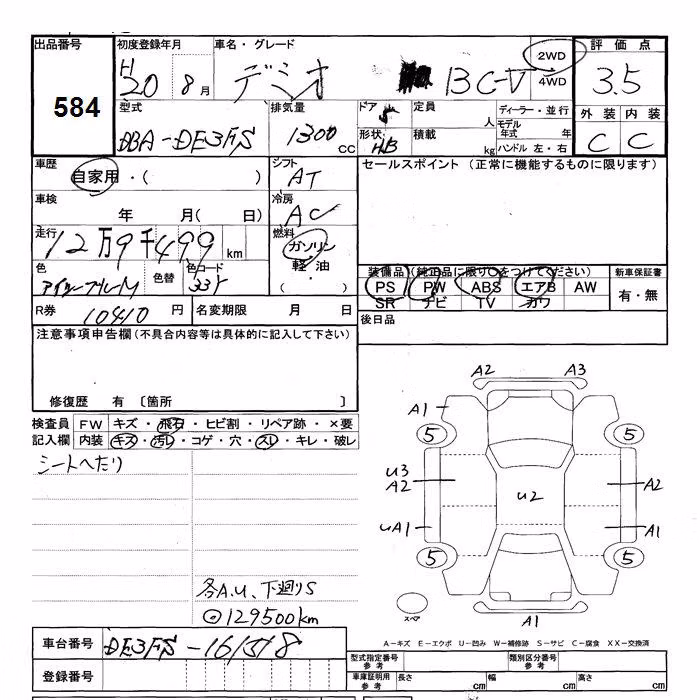 出品番号 初度登録年月 車名・グレード 2WD 評価点
584 H 20 8月 デミオ 13C-V 4WD 3.5
型式 排気量 ドア 定員 ディーラー・並行 外装 内装
DBA-DE3FS 1300 CC 5 人 モデル年式 年
形状 HB 積載 kg ハンドル 左・右 C C
車歴 自家用・( ) シフト AT セールスポイント (正常に機能するものに限ります)
車検 年 月( 日) 冷房 AC
走行 12万9千499 km 燃料 ガソリン
色 色替 色コード 33Y 軽油
・( )
装備品 (純正品に限り○をつけてください) 新車保証書
PS PW ABS エアB AW 有・無
SR ナビ TV カワ
R券 10410 円 名変期限 月 日 後日品
注意事項申告欄 (不具合内容等は具体的に記入して下さい)
修復歴 有 〔箇所 〕
検査員 FW キズ・飛石・ヒビ割・リペア跡・×要
記入欄 内装 キズ・汚レ・コゲ・穴・スレ・キレ・破レ
シートへたり
各A.U、下廻りS
◎129500km
A2 A3
A1
5 5
U3
A2 U2 A2
UA1 A1
5 5
スペア A1
A-キズ E-エクボ U-凹み W-補修跡 S-サビ C-腐食 XX-交換済
車台番号 DE3FS-161518
登録番号
型式指定番号 参考 類別区分番号 参考
車庫証明用 参考 長さ cm 幅 cm 高さ cm